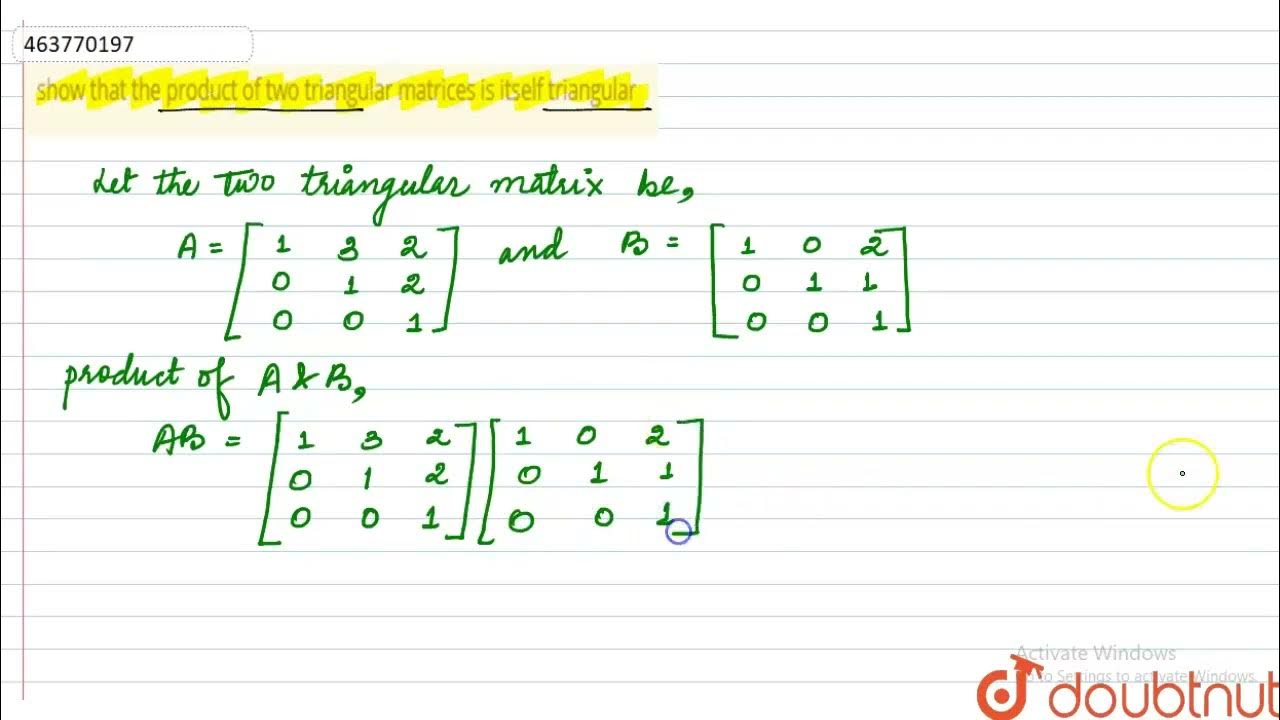 463770197
show that the product of two triangular matrices is itself triangular
Let the two triangular matrix be,
A = [ 1 3 2 ] and B = [ 1 0 2 ]
0 1 2 0 1 1
0 0 1 0 0 1
product of A & B,
AB = [ 1 3 2 ] [ 1 0 2 ]
0 1 2 0 1 1
0 0 1 0 0 1
Activate Windows
Go to Settings to activate Windows.
doubtnut